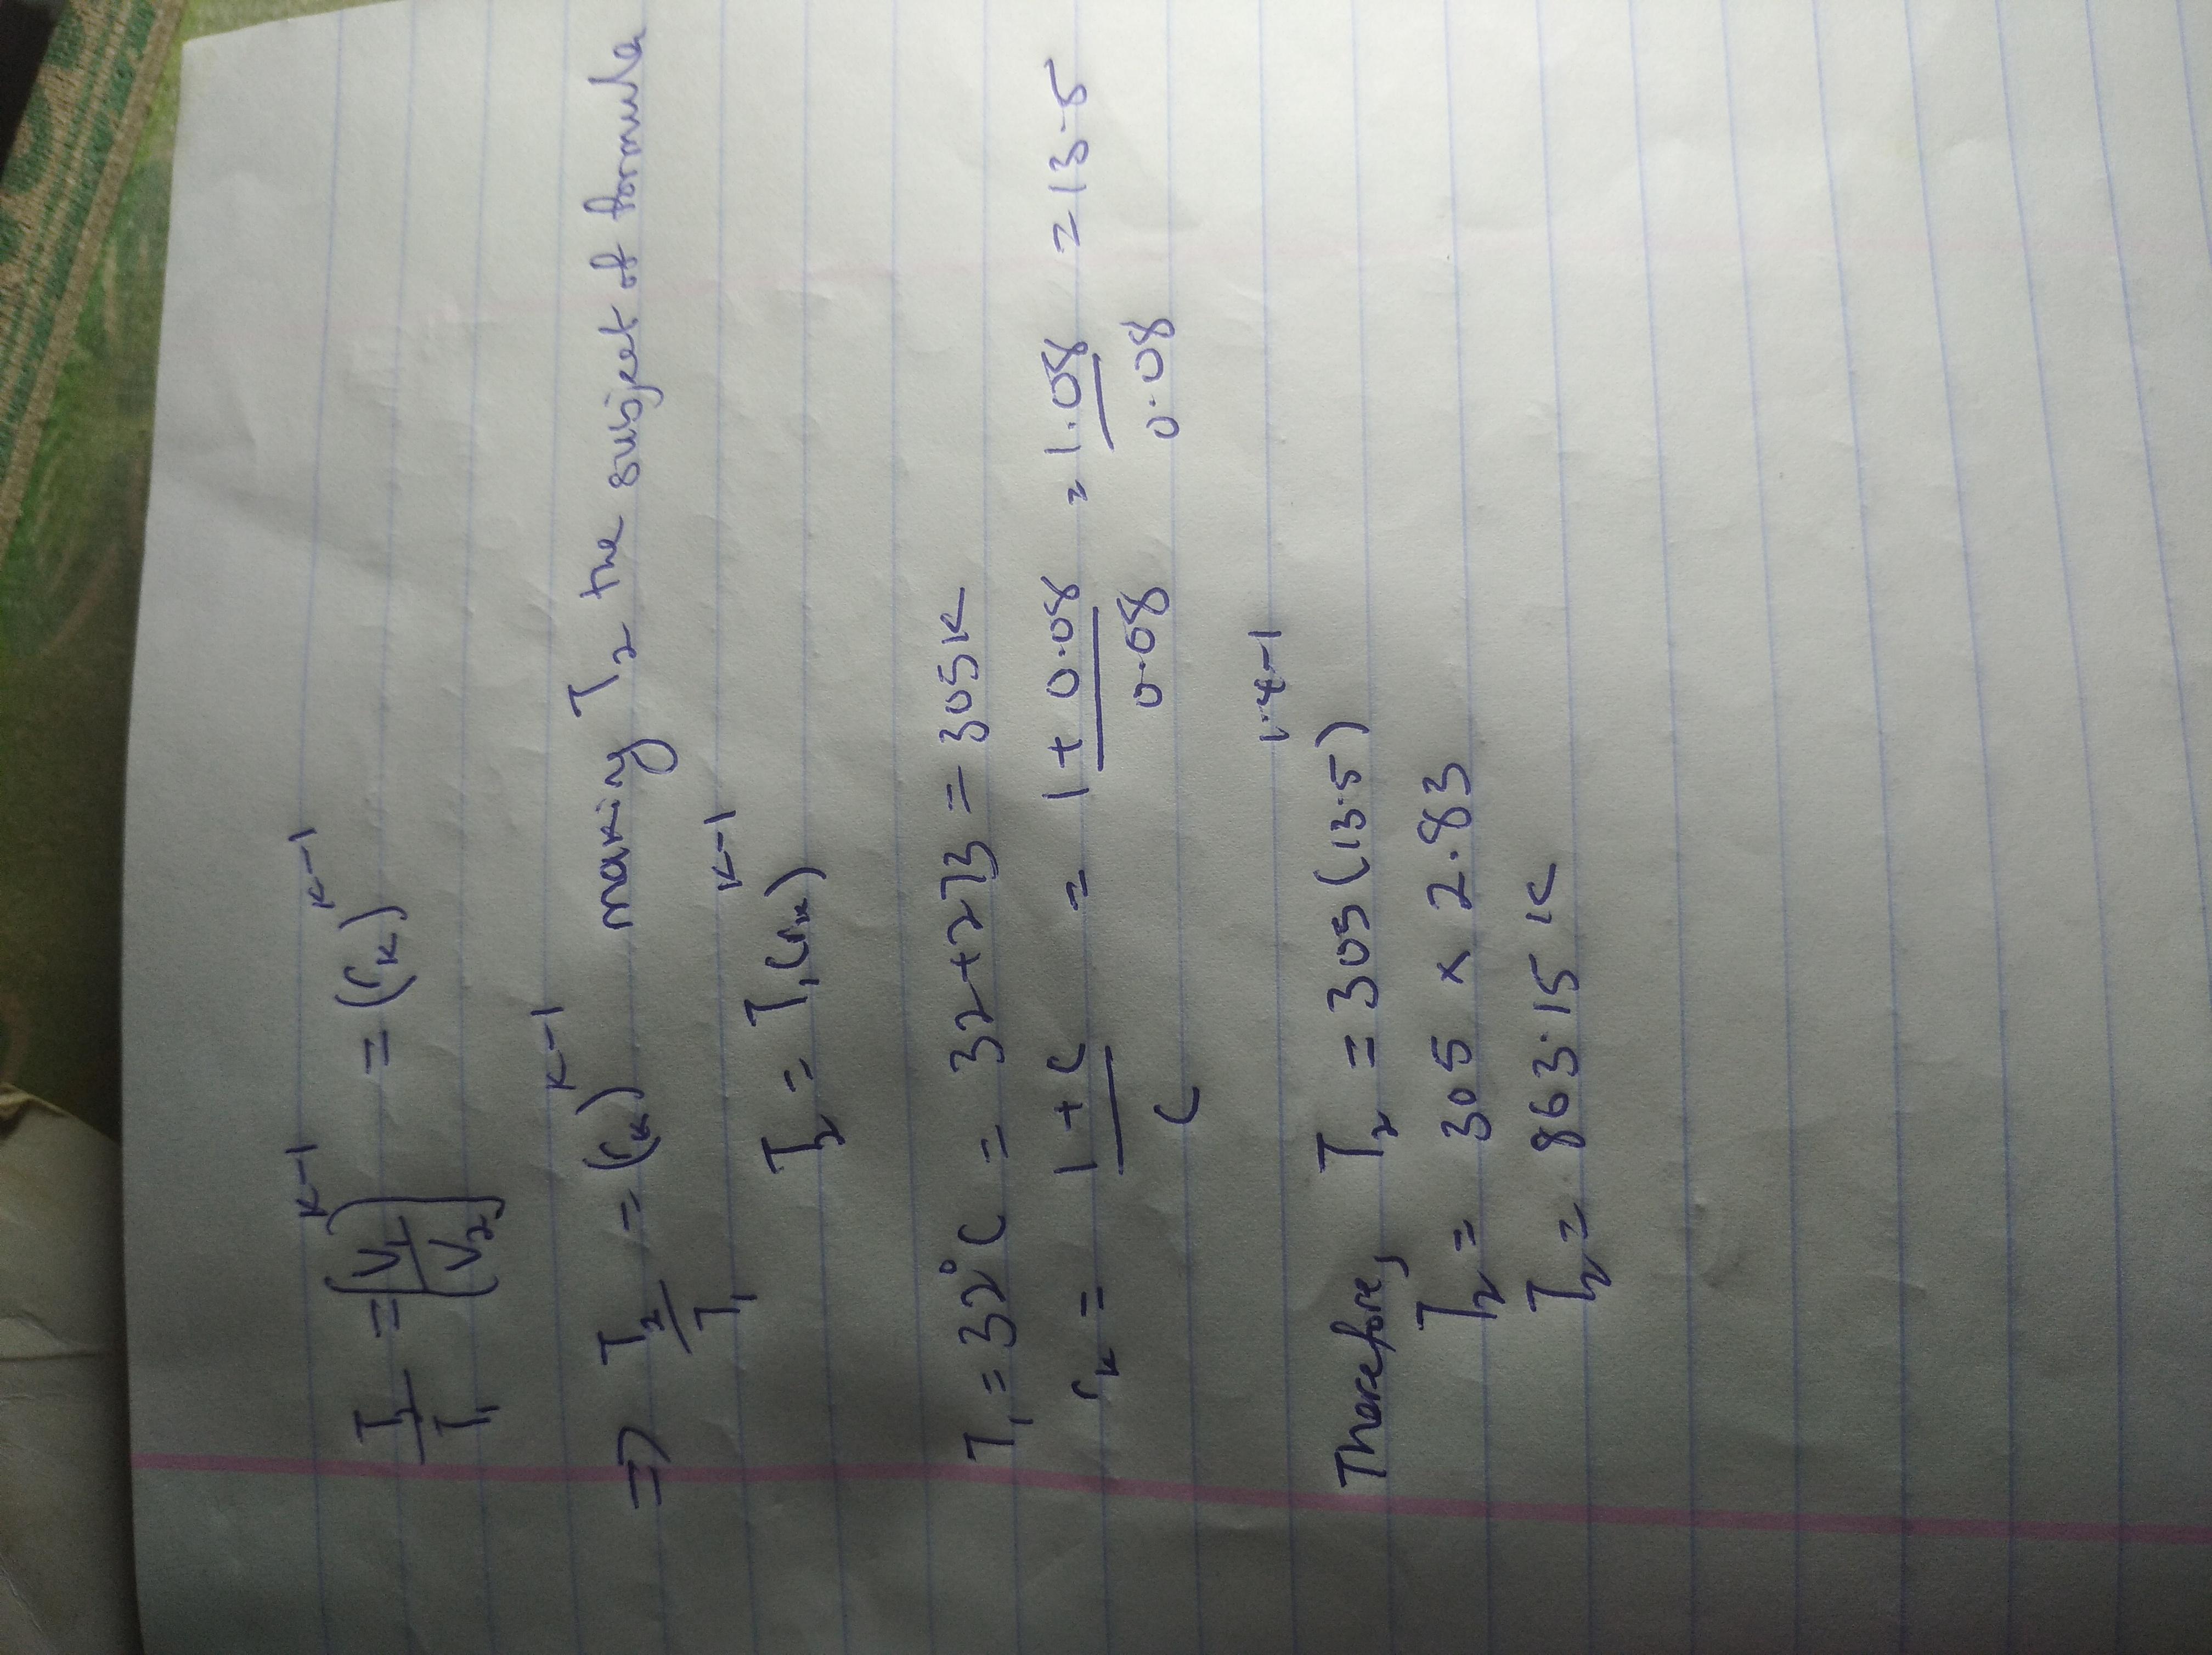 T₂/T₁ = (V₁/V₂)^(K-1) = (r_K)^(K-1)
=> T₂/T₁ = (r_K)^(K-1) making T₂ the subject of formula
T₂ = T₁(r_K)^(K-1)
T₁ = 32°C = 32+273 = 305K
r_K = (1+C)/C = (1+0.08)/0.08 = 1.08/0.08 = 13.5
Therefore, T₂ = 305(13.5)^(1.4-1)
T₂ = 305 × 2.83
T₂ = 863.15 K